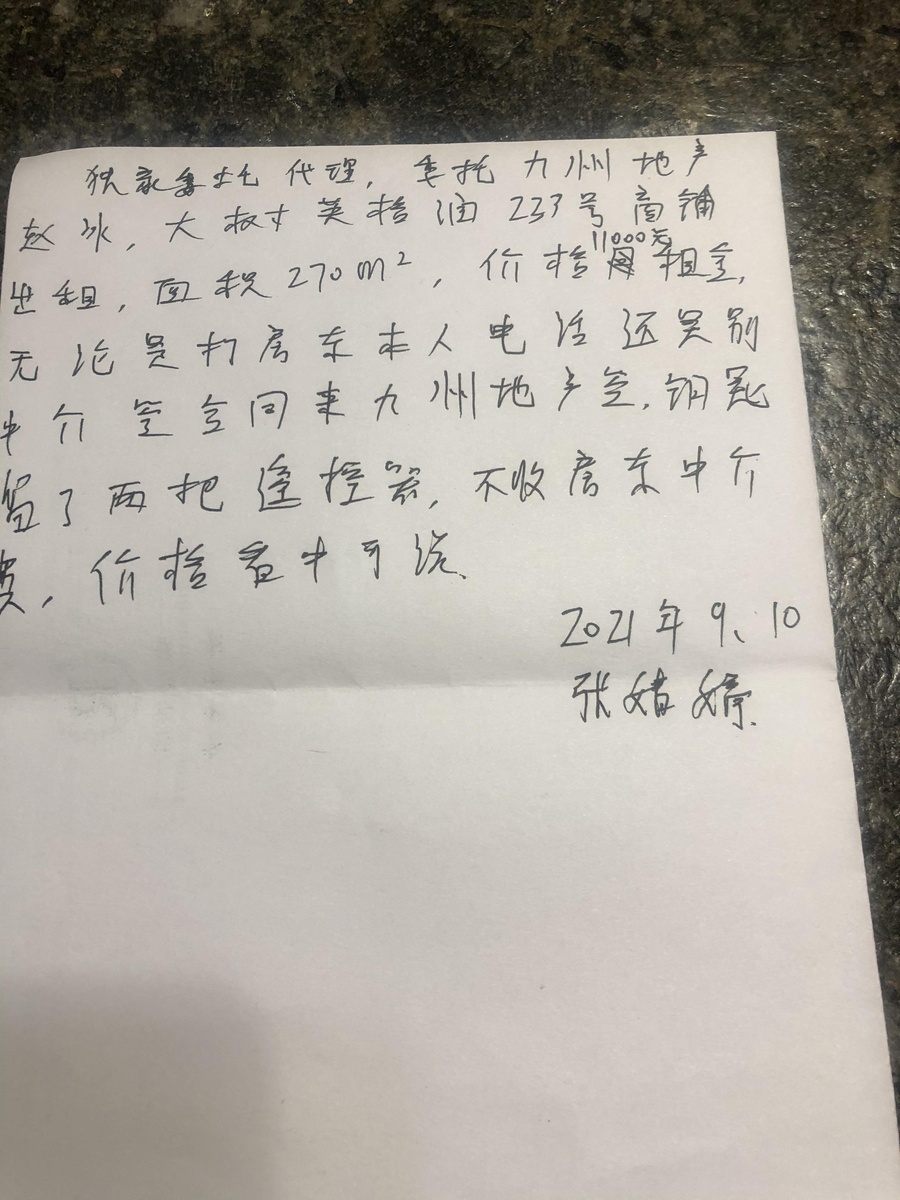 独家委托代理，委托九州地产
赵冰，大叔才英格润233号商铺
出租，面积270m²，价格11000元租金，
无论是打房东本人电话还是别
中介签合同来九州地产签，钥匙
留了两把遥控器，不收房东中介
费，价格看中可谈、
2021年9、10
张婧婷